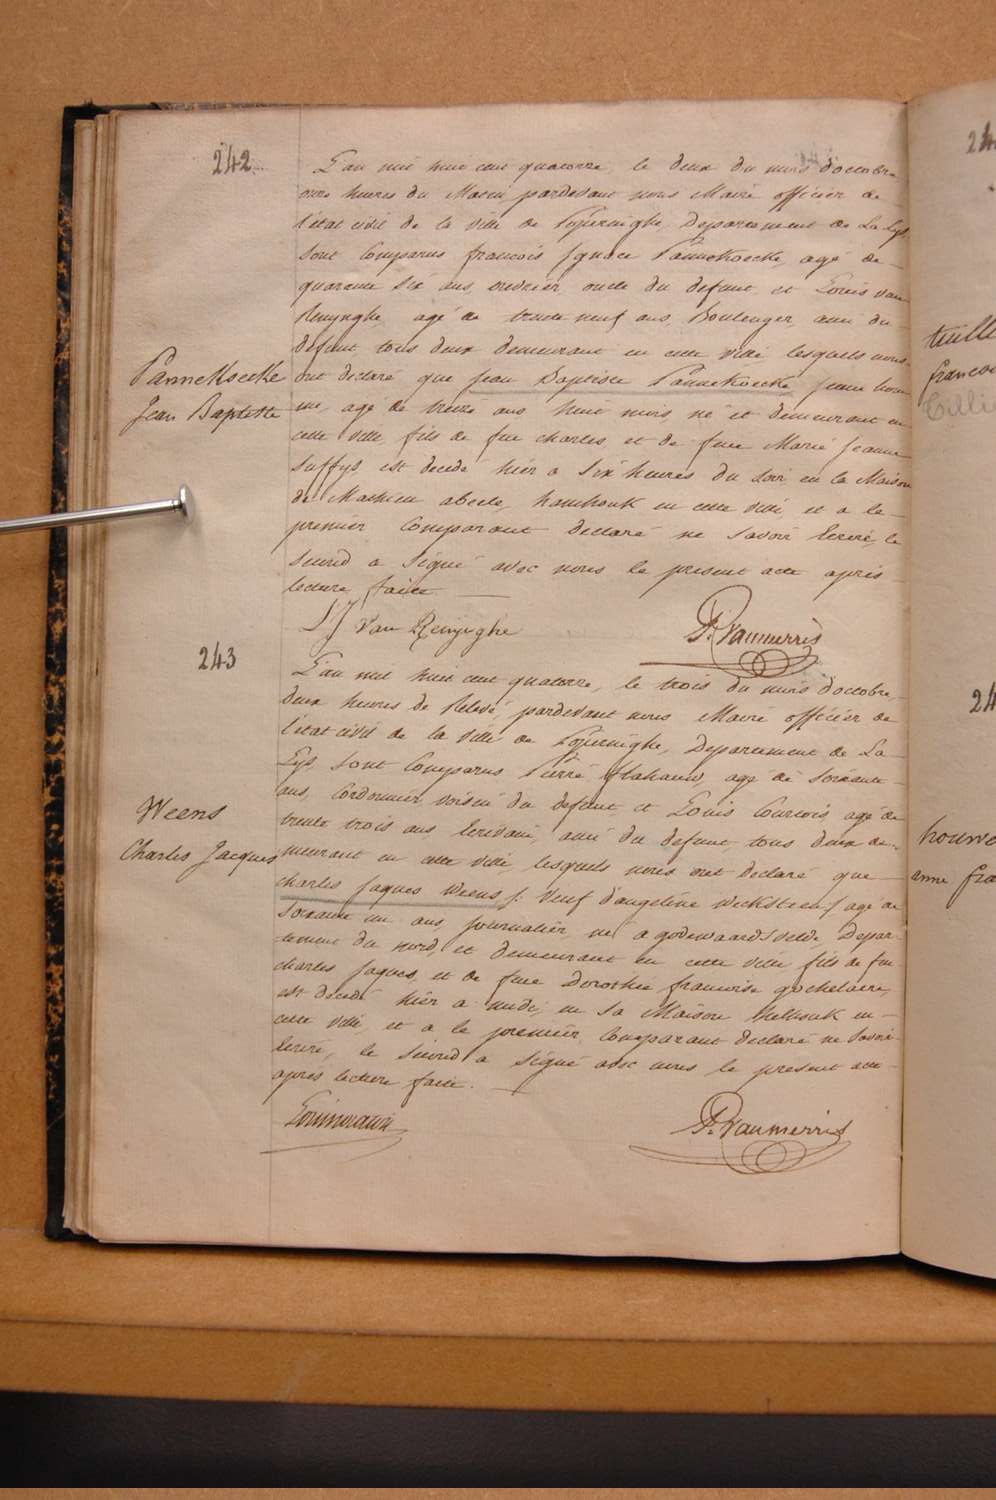 242
L'an mil huit cent quatorze, le deux du mois d'octobre
onze heures du Matin pardevant nous Maire officier de
l'état civil de la ville de Poperinghe, Departement de La Lys,
sont Comparus francois Ignace Pannekoecke, agé de
quarante six ans, ouvrier oncle du defunt et Louis van
Renynghe agé de trente neuf ans Boulenger, ami du
defunt, tous deux demeurant en cette ville lesquels nous
ont declaré que Jean Baptiste Pannekoecke jeune hom
me, agé de treize ans, huit mois, né et demeurant en
cette ville, fils de feu charles, et de feue Marie Jeanne
Suffys est decedé hier a six heures du soir en la Maison
de Mathieu abeele, hamhouk en cette ville, et a le
premier Comparant declaré ne savoir Ecrire, le
second a signé avec nous le present acte après
lecture faite
Pannekoecke
Jean Baptiste
L J Van Renynghe
P. Vanmerris
243
L'an mil huit cent quatorze, le trois du mois d'octobre,
deux heures de Relevé, pardevant nous Maire officier de
l'état civil de la ville de Poperinghe, Departement de La
Lys, sont Comparus Pierre Stahauw, agé de soixante
ans, Cordonnier voisin du defunt, et Louis Courtois agé de
trente trois ans Ecrivain, ami du defunt, tous deux de
meurant en cette ville, lesquels nous ont declaré que
charles Jaques Weens /: Veuf d'angeline Wecksteen :/ agé de
soixante un ans, journalier, né a godewaardsvelde, Depar
tement du nord, et demeurant en cette ville fils de feu
charles Jaques, et de feue Dorothee francoise gochelaere,
est decedé hier a midi, en sa Maison Helhouk en
cette ville, et a le premier Comparant declaré ne savoir
Ecrire, le second a signé avec nous le present acte
après lecture faite.
Weens
Charles Jacques
P. Vanmerris
24
tuille
francoi
Tillie
24
houwe
anne fra